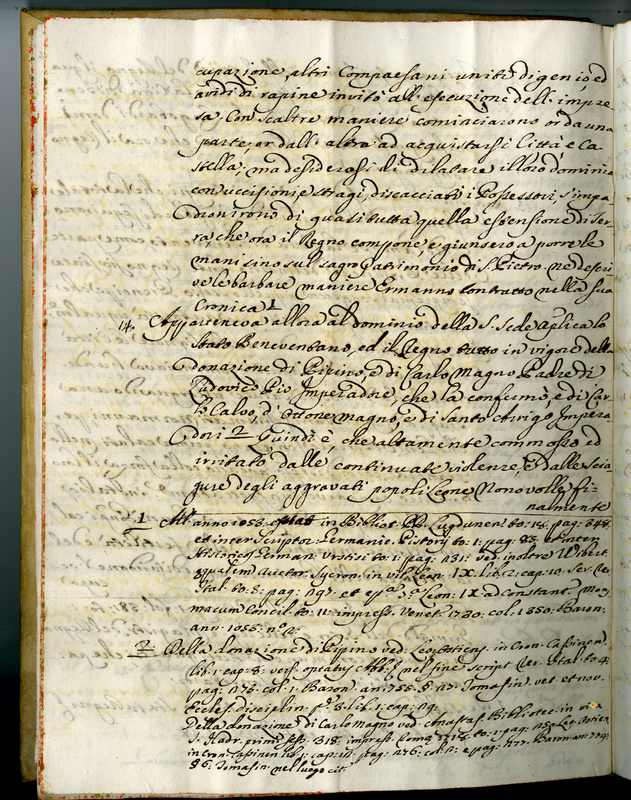 cupazione, altri Compaesani uniti di genio, ed
avidi di rapine invitò all' esecuzione dell' impre-
sa. Con scaltre maniere cominciarono or da una
parte, or dall' altra ad acquistarsi Città, e Ca-
stella; ma desiderosi di dilatare il loro dominio
con uccisioni, e stragi, discacciati i Possessori, s'impa-
dronirono di quasi tutta quella estensione di Ter-
ra, che ora il Regno compone, e giunsero a porre le
mani sino sul sagro Patrimonio di S. Pietro. ne descri-
ve le barbare maniere Ermanno Contratto nella sua
Cronica 1
14. Apparteneva allora al dominio della S. Sede Aplica lo
Stato Beneventano, ed il Regno tutto in vigore della
donazione di Pipino, e di Carlo Magno Padre di
Ludovico Pio Imperadre, che la confermò, e di Car-
lo Calvo, d' Ottone magno, e di Santo Arrigo Impera-
dori 2 Quindi è, che altamente commosso ed
irritato dalle continuate violenze, e dalle scia-
gure degli aggravati popoli Leone Nono volle fi-
nalmente
1 All' anno 1053: in Bibliot. PP. Lugdunen: to: 18: pag: 348.
et inter scriptor: Germanic. Pistorij to: 1: pag:
Historicos German: Urstisi to: 1: pag: ved: inoltre Wibert.
Auctor: Syncron: in vita Leon: IX. lib: 2: cap: 10. Scr: Rer:
Ital: to: 3: pag: et epa Leon: IX ad Constant. Mo
macum Concil. to: 11: impress. Venet. 1730. col: 1350: Baron:
ann: 1053: no
2 Della donazione di Pipino ved: Leo Ostiens. in Cron: Cassinen.
lib: 1: cap: 8: vers. optatus Abb. nel fine Script. Rer. Ital. to: 4:
pag: col: 1. Baron. an: 755. Tomasin. vet. et nov.
Eccles. disciplin. p. 3: lib: 1: cap:
Della donazione di Carlo Magno ved: Anastas. Bibliotec. in vita
S. Hadr. primi impress. Romae 1718. to: 1: pag: Leo Ostien
in Cron: Cassinen lib: 1: cap: 12: pag: 276. col: e pag: Baron an:
Tomasin. nel luogo cit.